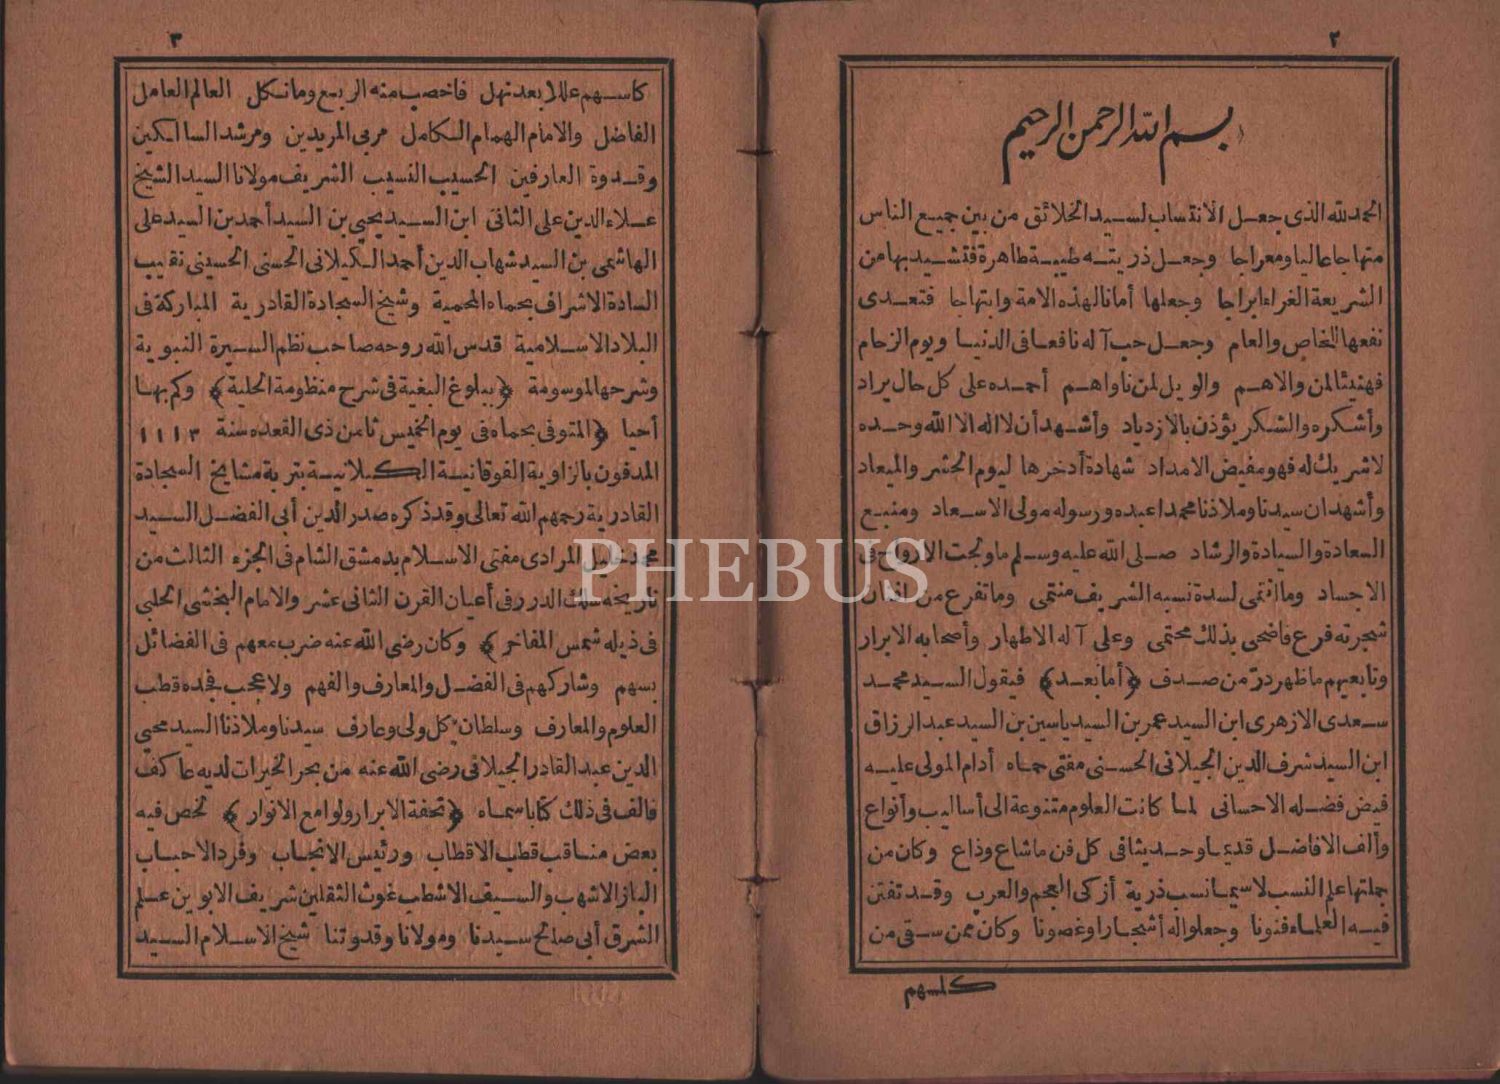 ٢
بسم الله الرحمن الرحيم
الحمد لله الذى جعل الانتساب لسيد الخلائق من بين جميع الناس
منهاجا عاليا ومعراجا وجعل ذريته طيبة طاهرة فتشيد بها من
الشريعة الغراء ابراجا وجعلها أمانا لهذه الامة وابتهاجا فتعدى
نفعها الخاص والعام وجعل حب آله نافعا فى الدنيا ويوم الزحام
فهنيئا لمن والاهم والويل لمن ناواهم أحمده على كل حال يراد
وأشكره والشكر يؤذن بالازدياد وأشهد أن لا اله الا الله وحده
لا شريك له فهو مفيض الامداد شهادة أدخرها ليوم الحشر والميعاد
وأشهد ان سيدنا وملاذنا محمدا عبده ورسوله مولى الاسعاد ومنبع
السعادة والسيادة والرشاد صلى الله عليه وسلم ما ولجت الارواح فى
الاجساد وما انتمى لسدة نسبه الشريف منتمى وما تفرع من افنان
شجرته فرع فاضحى بذلك محتمى وعلى آله الاطهار وأصحابه الابرار
وتابعيهم ما ظهر در من صدف ﴿أما بعد﴾ فيقول السيد محمد
سعدى الازهرى ابن السيد عمر بن السيد ياسين بن السيد عبد الرزاق
ابن السيد شرف الدين الجيلانى الحسنى مفتى حماه أدام المولى عليه
فيض فضله الاحسانى لما كانت العلوم متنوعة الى أساليب وأنواع
وألف الافاضل قديما وحديثا فى كل فن ما شاع وذاع وكان من
جملتها علم النسب لاسيما نسب ذرية أزكى العجم والعرب وقد تفنن
فيه العلماء فنونا وجعلوا له أشجارا وغصونا وكان ممن سقى من
كاسهم
٣
كاسهم عللا بعد نهل فاخصب منه الربع وما نكل العالم العامل
الفاضل والامام الهمام الكامل مربى المريدين ومرشد السالكين
وقدوة العارفين الحسيب النسيب الشريف مولانا السيد الشيخ
علاء الدين على الثانى ابن السيد يحيى بن السيد أحمد بن السيد على
الهاشمى بن السيد شهاب الدين أحمد الكيلانى الحسنى الحسينى نقيب
السادة الاشراف بحماه المحمية وشيخ السجادة القادرية المباركة فى
البلاد الاسلامية قدس الله روحه صاحب نظم السيرة النبوية
وشرحها الموسومة ﴿ببلوغ البغية فى شرح منظومة الحلية﴾ وكم بها
أحيا ﴿المتوفى بحماه فى يوم الخميس ثامن ذى القعده سنة ١١١٣
المدفون بالزاوية الفوقانية الكيلانية بتربة مشايخ السجادة
القادرية رحمهم الله تعالى وقد ذكره صدر الدين أبى الفضل السيد
محمد خليل المرادى مفتى الاسلام بدمشق الشام فى الجزء الثالث من
تاريخه سلك الدرر فى أعيان القرن الثانى عشر والامام البخشى الحلبى
فى ذيله شمس المفاخر﴾ وكان رضى الله عنه ضرب معهم فى الفضائل
بسهم وشاركهم فى الفضل والمعارف والفهم ولا عجب فجده قطب
العلوم والمعارف وسلطان كل ولى وعارف سيدنا وملاذنا السيد محيى
الدين عبد القادر الجيلانى رضى الله عنه من بحر الخيرات لديه عاكف
فالف فى ذلك كتابا سماه ﴿تحفة الابرار ولوامع الانوار﴾ لخص فيه
بعض مناقب قطب الاقطاب ورئيس الانجاب وفرد الاحباب
الباز الاشهب والسيف الاشطب غوث الثقلين شريف الابوين علم
الشرق أبى صالح سيدنا ومولانا وقدوتنا شيخ الاسلام السيد
PHEBUS